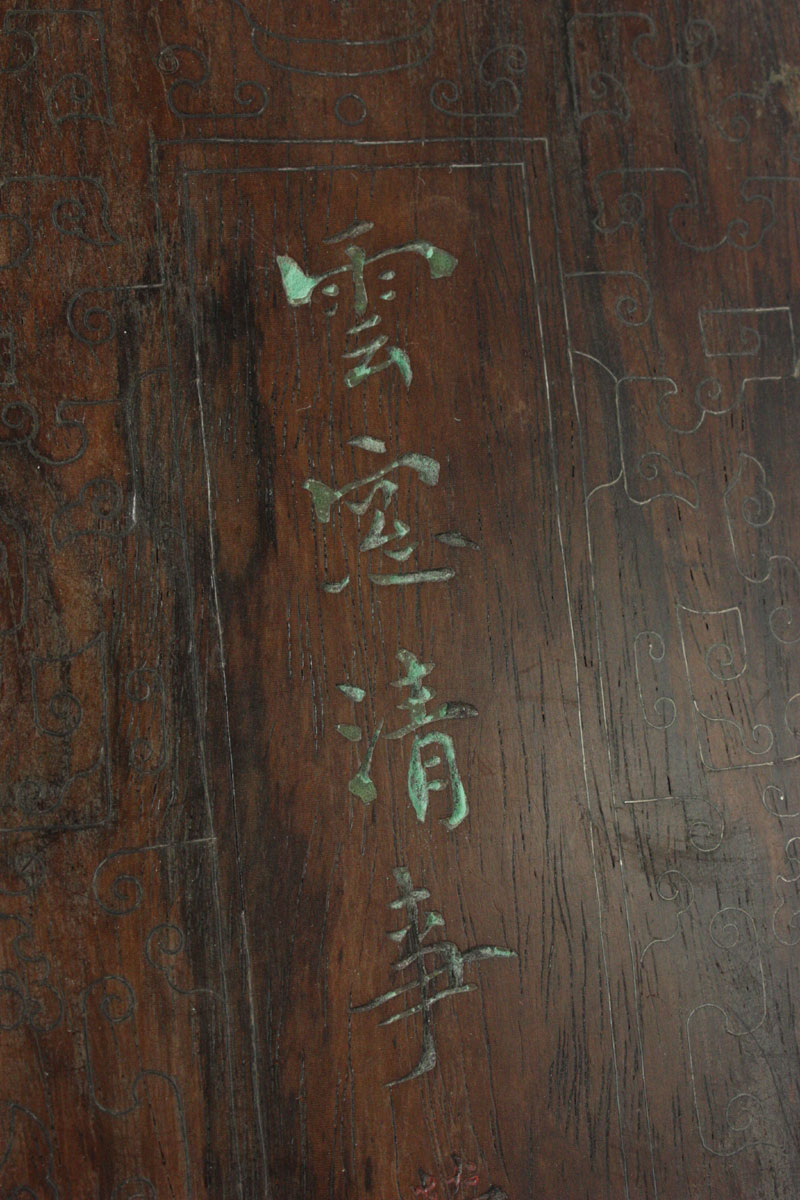 雲窓清事